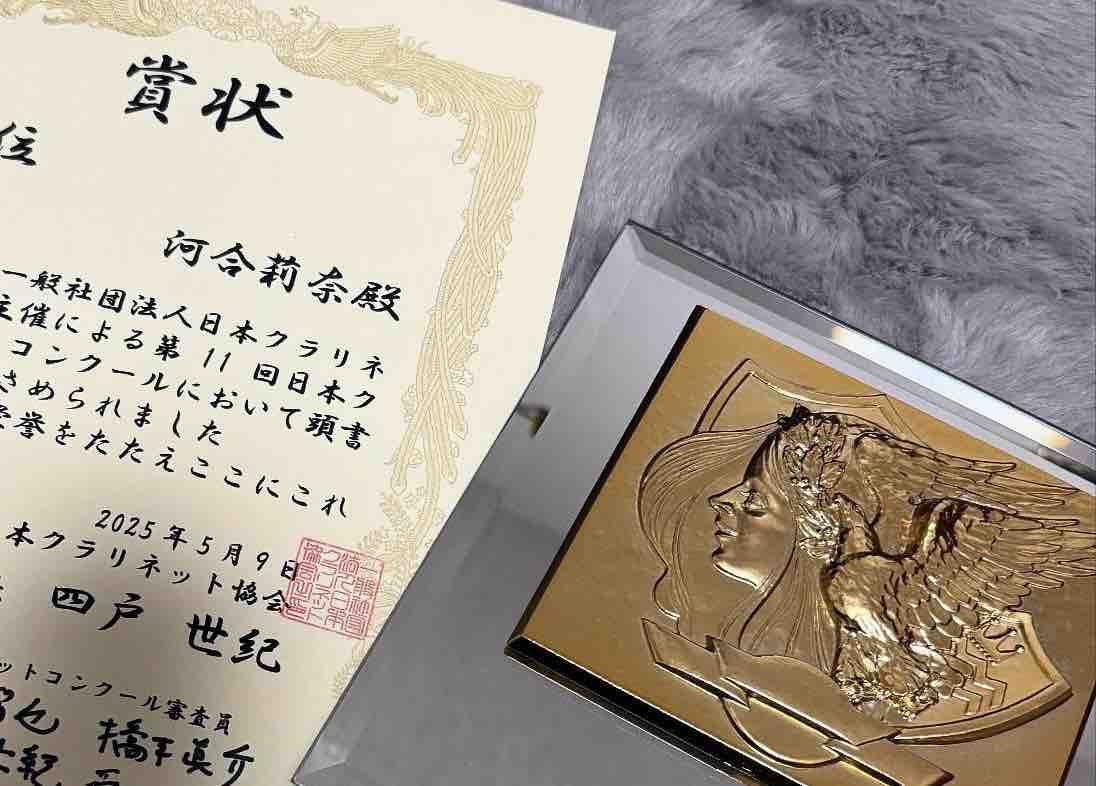 賞状
位
河合莉奈殿
一般社団法人日本クラリネ
主催による第11回日本ク
コンクールにおいて頭書
さめられました
誉をたたえここにこれ
2025年5月9日
本クラリネット協会
四戸 世紀
ットコンクール審査員
橋本眞介